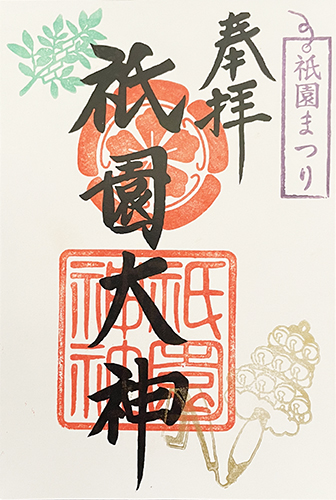 祇園まつり
奉拝
祇園大神
祇園
神社